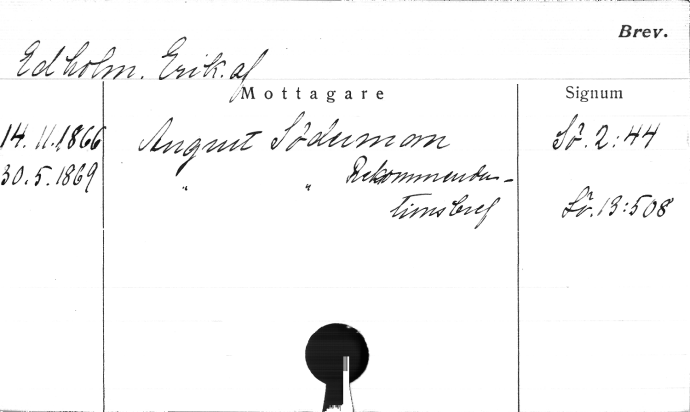 Brev.
Edholm. Erik. af
Mottagare Signum
14.11.1866 August Söderman Sö. 2:44
30.5.1869 " " Rekommenda-
tionsbref Sö. 13:508